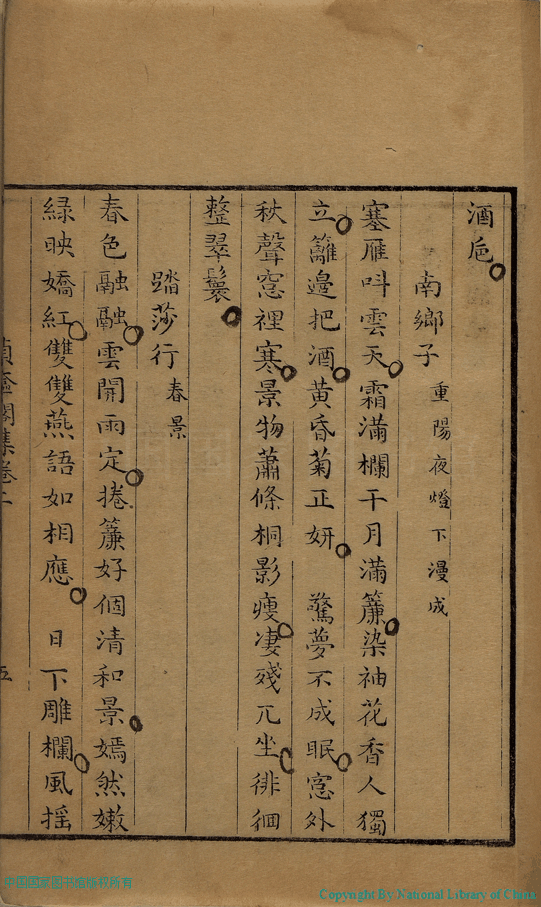 酒巵
南鄉子 重陽夜燈下漫成
塞雁呌雲天霜滿欄干月滿簾染袖花香人獨
立籬邊把酒黃昏菊正妍　驚夢不成眠窓外
秋聲窓裡寒景物蕭條桐影瘦凄殘兀坐徘徊
整翠鬟
踏莎行 春景
春色融融雲開雨定捲簾好個清和景嫣然嫩
綠映嬌紅雙雙燕語如相應　日下雕欄風搖
閣集卷二
五
中国国家图书馆版权所有
Copyright By National Library of China